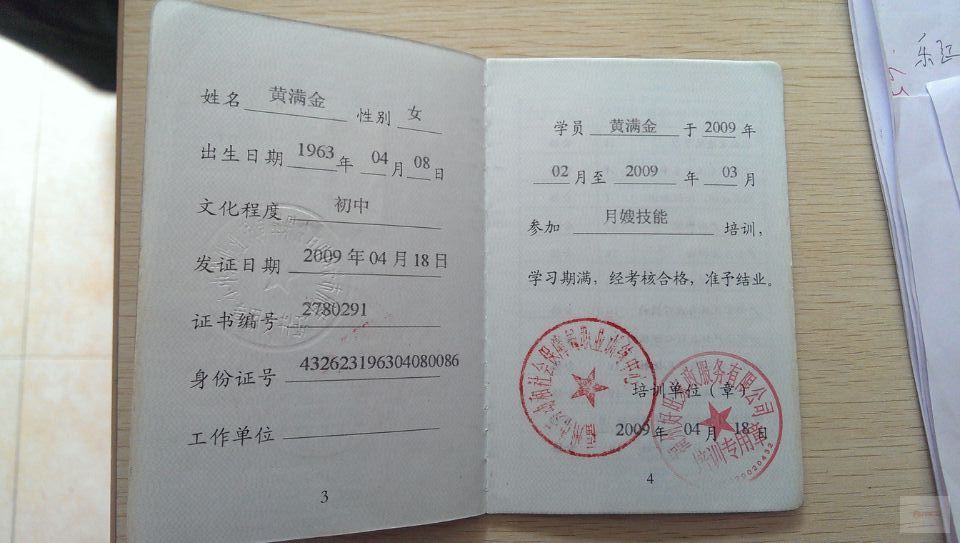 姓名 黄满金 性别 女
出生日期 1963 年 04 月 08 日
文化程度 初中
发证日期 2009 年 04 月 18 日
证书编号 2780291
身份证号 432623196304080086
工作单位
3
学员 黄满金 于 2009 年
02 月至 2009 年 03 月
参加 月嫂技能 培训，
学习期满，经考核合格，准予结业。
培训单位（章）
2009 年 04 月 18 日
培训专用章
4